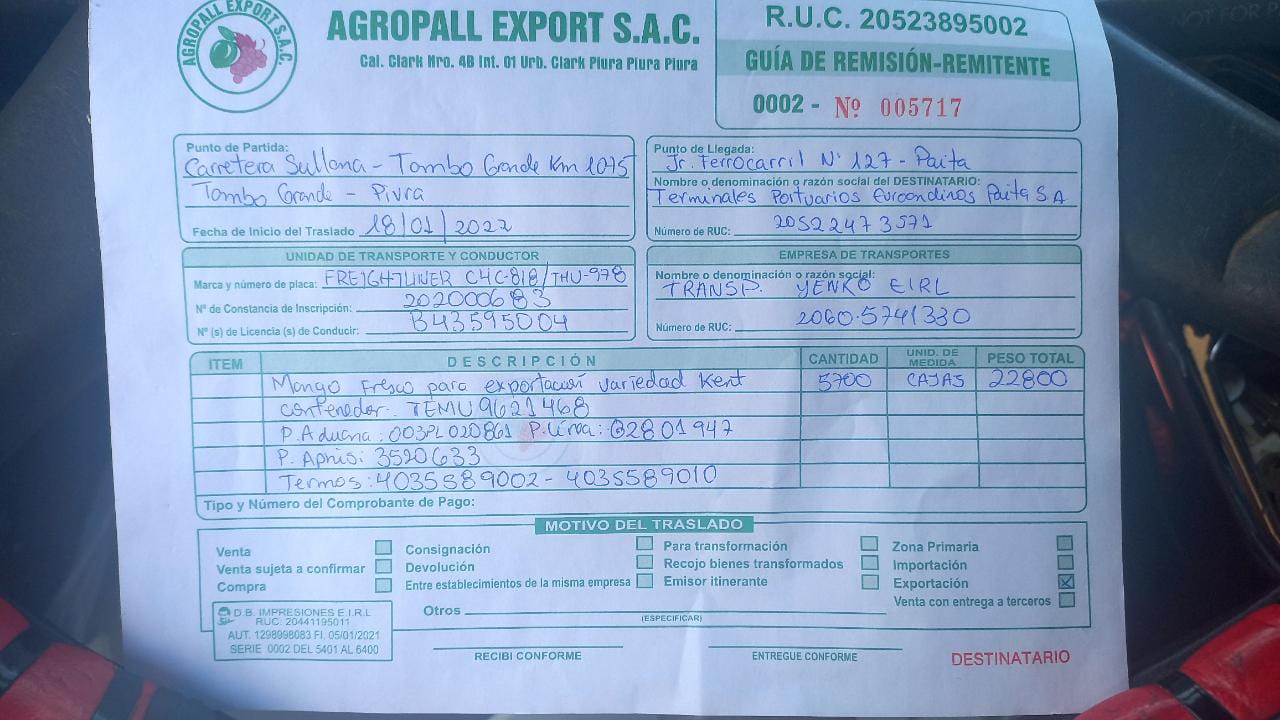 AGROPALL EXPORT S.A.C.
AGROPALL EXPORT S.A.C.
Cal. Clark Nro. 4B Int. 01 Urb. Clark Piura Piura Piura
R.U.C. 20523895002
GUÍA DE REMISIÓN-REMITENTE
0002 - Nº 005717
Punto de Partida:
Carretera Sullana - Tambo Grande Km 1075
Tambo Grande - Piura
Fecha de Inicio del Traslado 18/01/2022
Punto de Llegada:
Jr. Ferrocarril N° 127 - Paita
Nombre o denominación o razón social del DESTINATARIO:
Terminales Portuarios Euroandinos Paita S.A
Número de RUC: 20522473571
UNIDAD DE TRANSPORTE Y CONDUCTOR
Marca y número de placa: FREIGHTLINER C4C-818/THU-978
Nº de Constancia de Inscripción: 202000683
Nº (s) de Licencia (s) de Conducir: B43595004
EMPRESA DE TRANSPORTES
Nombre o denominación o razón social:
TRANSP. YENKO EIRL
Número de RUC: 20605741330
ITEM DESCRIPCIÓN CANTIDAD UNID. DE MEDIDA PESO TOTAL
Mango fresco para exportación variedad Kent 5700 CAJAS 22800
contenedor: TEMU9621468
P. Aduana: 003PL020861 P. Linea: 02801947
P. Aphis: 3520633
Termos: 4035589002 - 4035589010
Tipo y Número del Comprobante de Pago:
MOTIVO DEL TRASLADO
Venta
Venta sujeta a confirmar
Compra
Consignación
Devolución
Entre establecimientos de la misma empresa
Para transformación
Recojo bienes transformados
Emisor itinerante
Zona Primaria
Importación
Exportación X
Venta con entrega a terceros
Otros
(ESPECIFICAR)
D.B. IMPRESIONES E.I.R.L
RUC. 20441195011
AUT. 1298998083 FI. 05/01/2021
SERIE 0002 DEL 5401 AL 6400
RECIBI CONFORME
ENTREGUE CONFORME
DESTINATARIO
NOT FOR